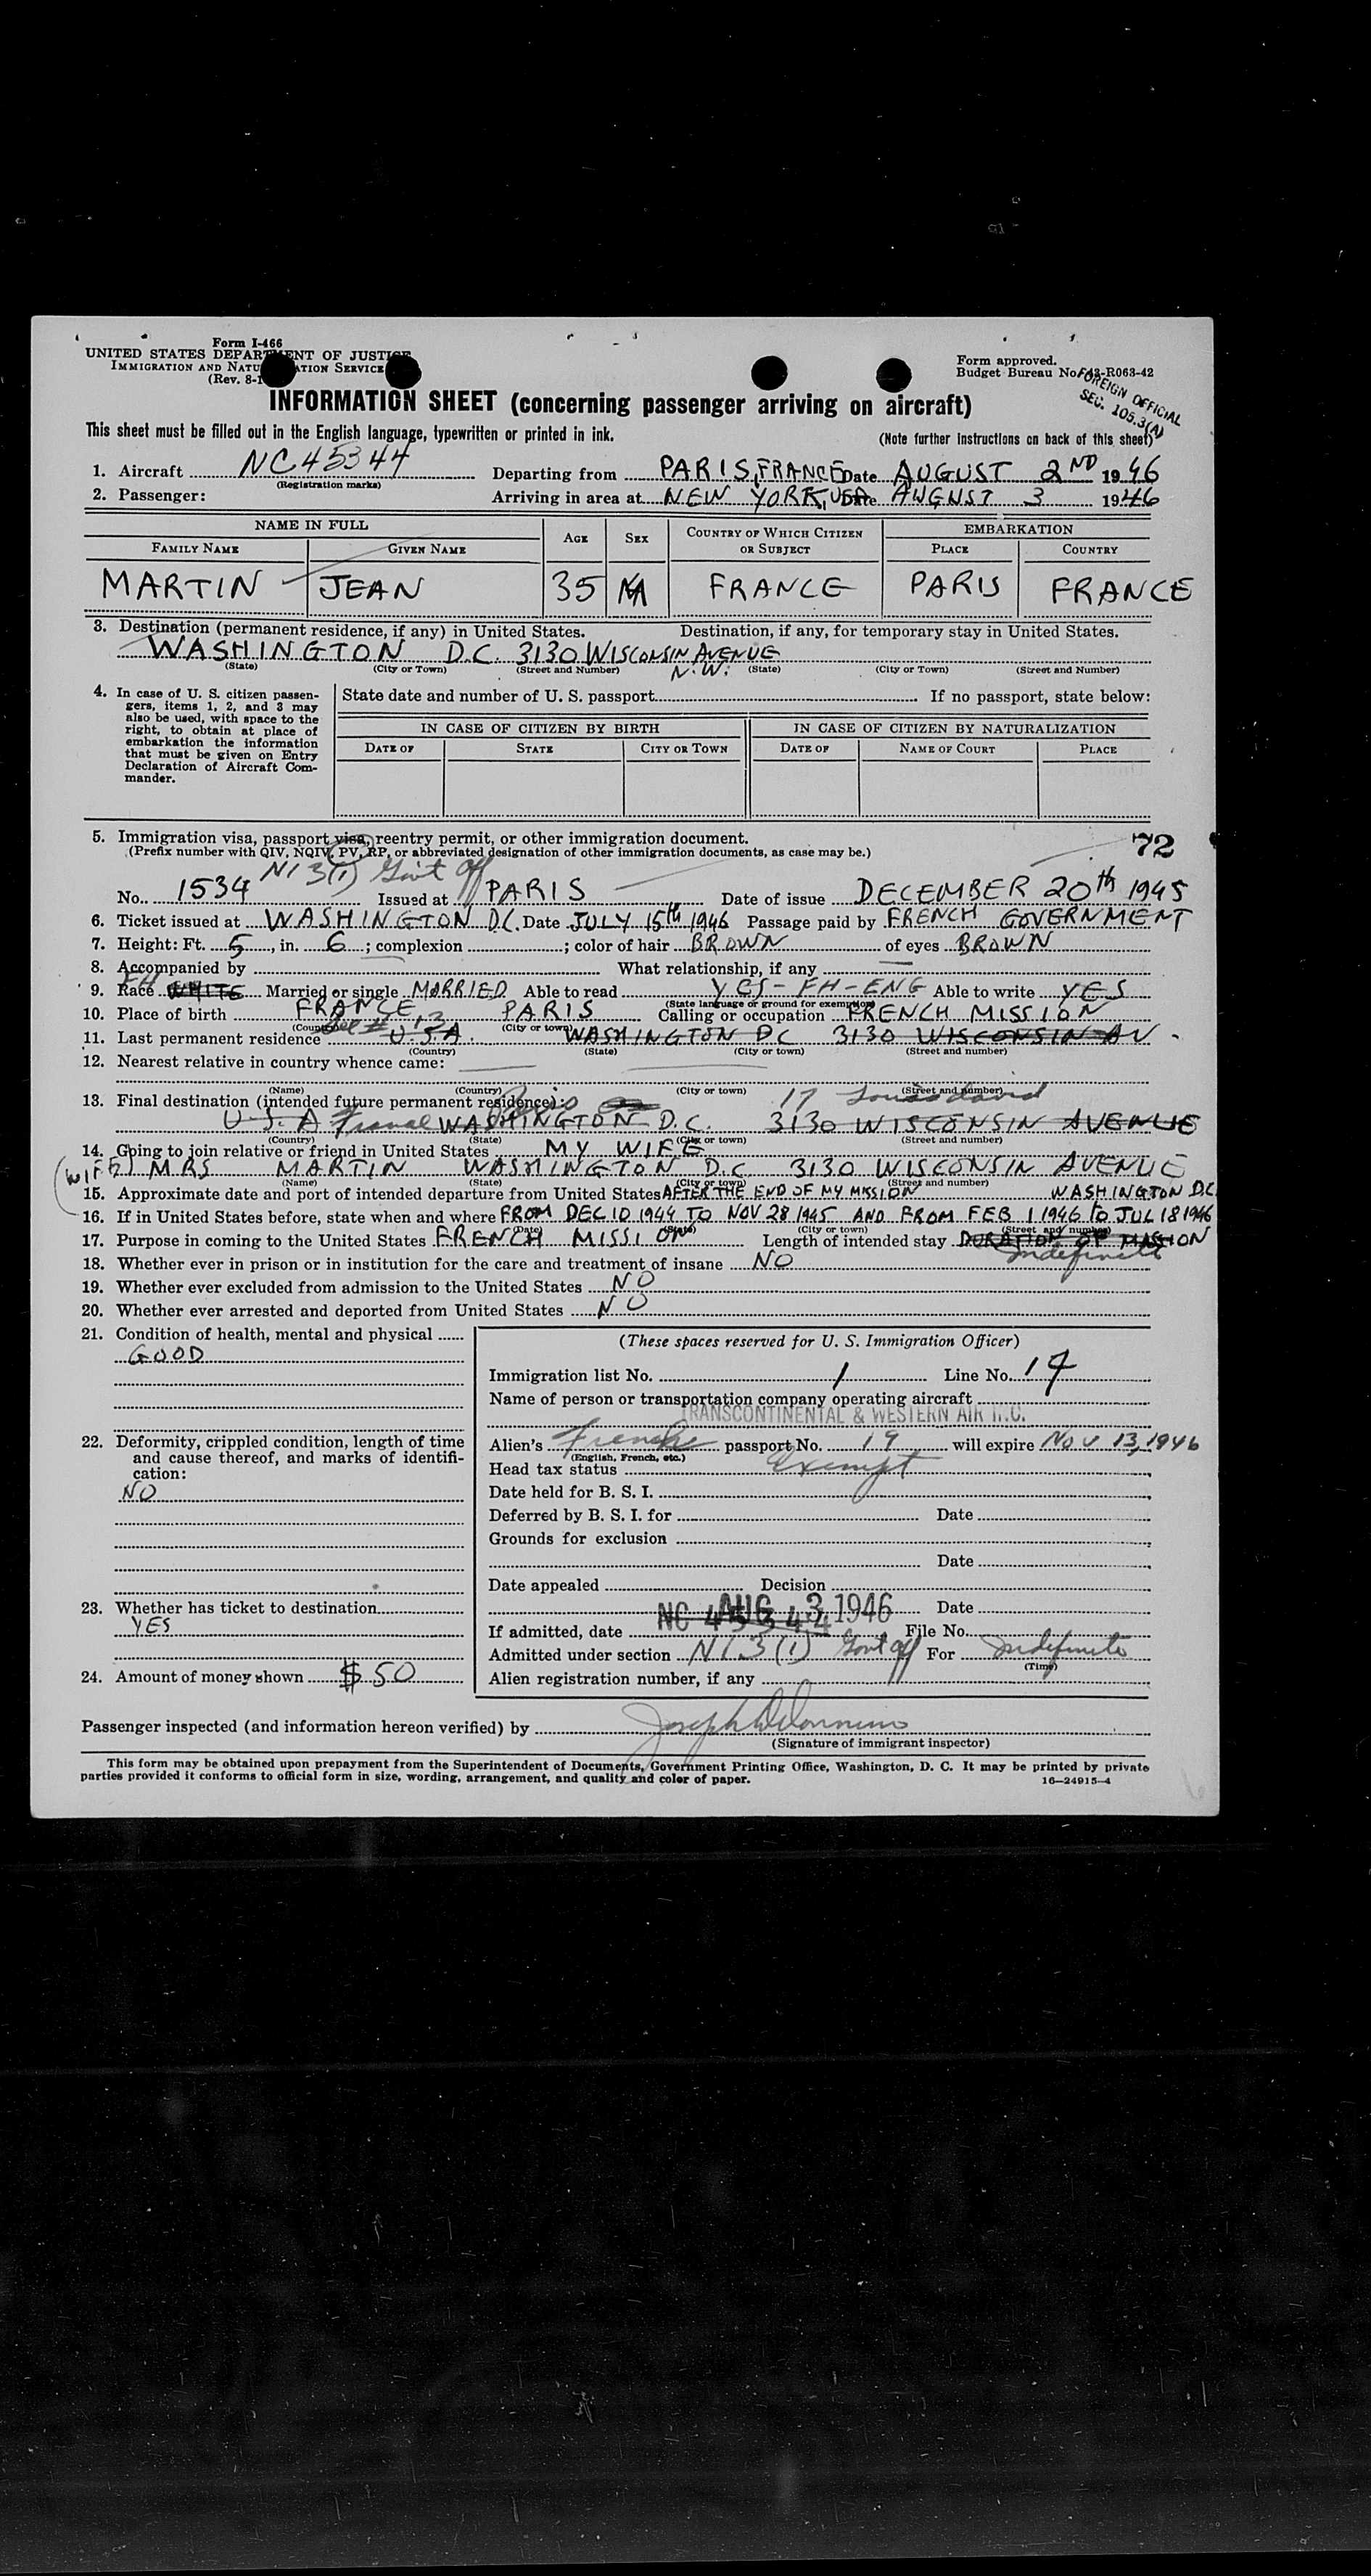 Form I-466
UNITED STATES DEPARTMENT OF JUSTICE
IMMIGRATION AND NATURALIZATION SERVICE
(Rev. 8-1
Form approved.
Budget Bureau No. 43-R063-42
FOREIGN OFFICIAL
SEC. 105.3(A)
INFORMATION SHEET (concerning passenger arriving on aircraft)
This sheet must be filled out in the English language, typewritten or printed in ink.
(Note further instructions on back of this sheet)
1. Aircraft NC45344 Departing from PARIS, FRANCE Date AUGUST 2ND 1946
(Registration marks)
2. Passenger: Arriving in area at NEW YORK, USA Date AUGUST 3 1946
NAME IN FULL AGE SEX COUNTRY OF WHICH CITIZEN OR SUBJECT EMBARKATION
FAMILY NAME GIVEN NAME PLACE COUNTRY
MARTIN JEAN 35 M FRANCE PARIS FRANCE
3. Destination (permanent residence, if any) in United States. Destination, if any, for temporary stay in United States.
WASHINGTON D.C. 3130 WISCONSIN AVENUE N.W.
(State) (City or Town) (Street and Number) (State) (City or Town) (Street and Number)
4. In case of U. S. citizen passengers, items 1, 2, and 3 may also be used, with space to the right, to obtain at place of embarkation the information that must be given on Entry Declaration of Aircraft Commander.
State date and number of U. S. passport If no passport, state below:
IN CASE OF CITIZEN BY BIRTH IN CASE OF CITIZEN BY NATURALIZATION
DATE OF STATE CITY OR TOWN DATE OF NAME OF COURT PLACE
5. Immigration visa, passport visa, reentry permit, or other immigration document. 72
(Prefix number with QIV, NQIV, PV, RP, or abbreviated designation of other immigration documents, as case may be.)
NI 3(1) Gov't off
No. 1534 Issued at PARIS Date of issue DECEMBER 20th 1945
6. Ticket issued at WASHINGTON D.C. Date JULY 15th 1946 Passage paid by FRENCH GOVERNMENT
7. Height: Ft. 5, in. 6; complexion ; color of hair BROWN of eyes BROWN
8. Accompanied by What relationship, if any
9. Race FH WHITE Married or single MARRIED Able to read YES-FH-ENG Able to write YES
(State language or ground for exemption)
10. Place of birth FRANCE PARIS Calling or occupation FRENCH MISSION
(Country) (City or town)
See # 13
11. Last permanent residence U.S.A. WASHINGTON DC 3130 WISCONSIN AV
(Country) (State) (City or town) (Street and number)
12. Nearest relative in country whence came:
(Name) (Country) (City or town) (Street and number)
13. Final destination (intended future permanent residence): Paris 17 Louis david
U.S.A France WASHINGTON D.C. 3130 WISCONSIN AVENUE
(Country) (State) (City or town) (Street and number)
14. Going to join relative or friend in United States MY WIFE
(WIFE) MRS MARTIN WASHINGTON D.C 3130 WISCONSIN AVENUE
(Name) (State) (City or town) (Street and number)
15. Approximate date and port of intended departure from United States AFTER THE END OF MY MISSION WASHINGTON D.C.
16. If in United States before, state when and where FROM DEC 10 1944 TO NOV 28 1945 AND FROM FEB 1 1946 to JUL 18 1946
(Date) (State) (City or town) (Street and number)
17. Purpose in coming to the United States FRENCH MISSION Length of intended stay DURATION OF MISSION
Indefinite
18. Whether ever in prison or in institution for the care and treatment of insane NO
19. Whether ever excluded from admission to the United States NO
20. Whether ever arrested and deported from United States NO
21. Condition of health, mental and physical
GOOD
22. Deformity, crippled condition, length of time and cause thereof, and marks of identification:
NO
23. Whether has ticket to destination
YES
24. Amount of money shown $50
(These spaces reserved for U. S. Immigration Officer)
Immigration list No. 1 Line No. 14
Name of person or transportation company operating aircraft
TRANSCONTINENTAL & WESTERN AIR INC.
Alien's French passport No. 19 will expire Nov 13, 1946
(English, French, etc.)
Head tax status Exempt
Date held for B. S. I.
Deferred by B. S. I. for Date
Grounds for exclusion
Date
Date appealed Decision
NC 45344 AUG 3 1946 Date
If admitted, date File No.
Admitted under section NI 3(1) Gov't off For Indefinite
(Time)
Alien registration number, if any
Passenger inspected (and information hereon verified) by
(Signature of immigrant inspector)
This form may be obtained upon prepayment from the Superintendent of Documents, Government Printing Office, Washington, D. C. It may be printed by private
parties provided it conforms to official form in size, wording, arrangement, and quality and color of paper. 16—24915-4